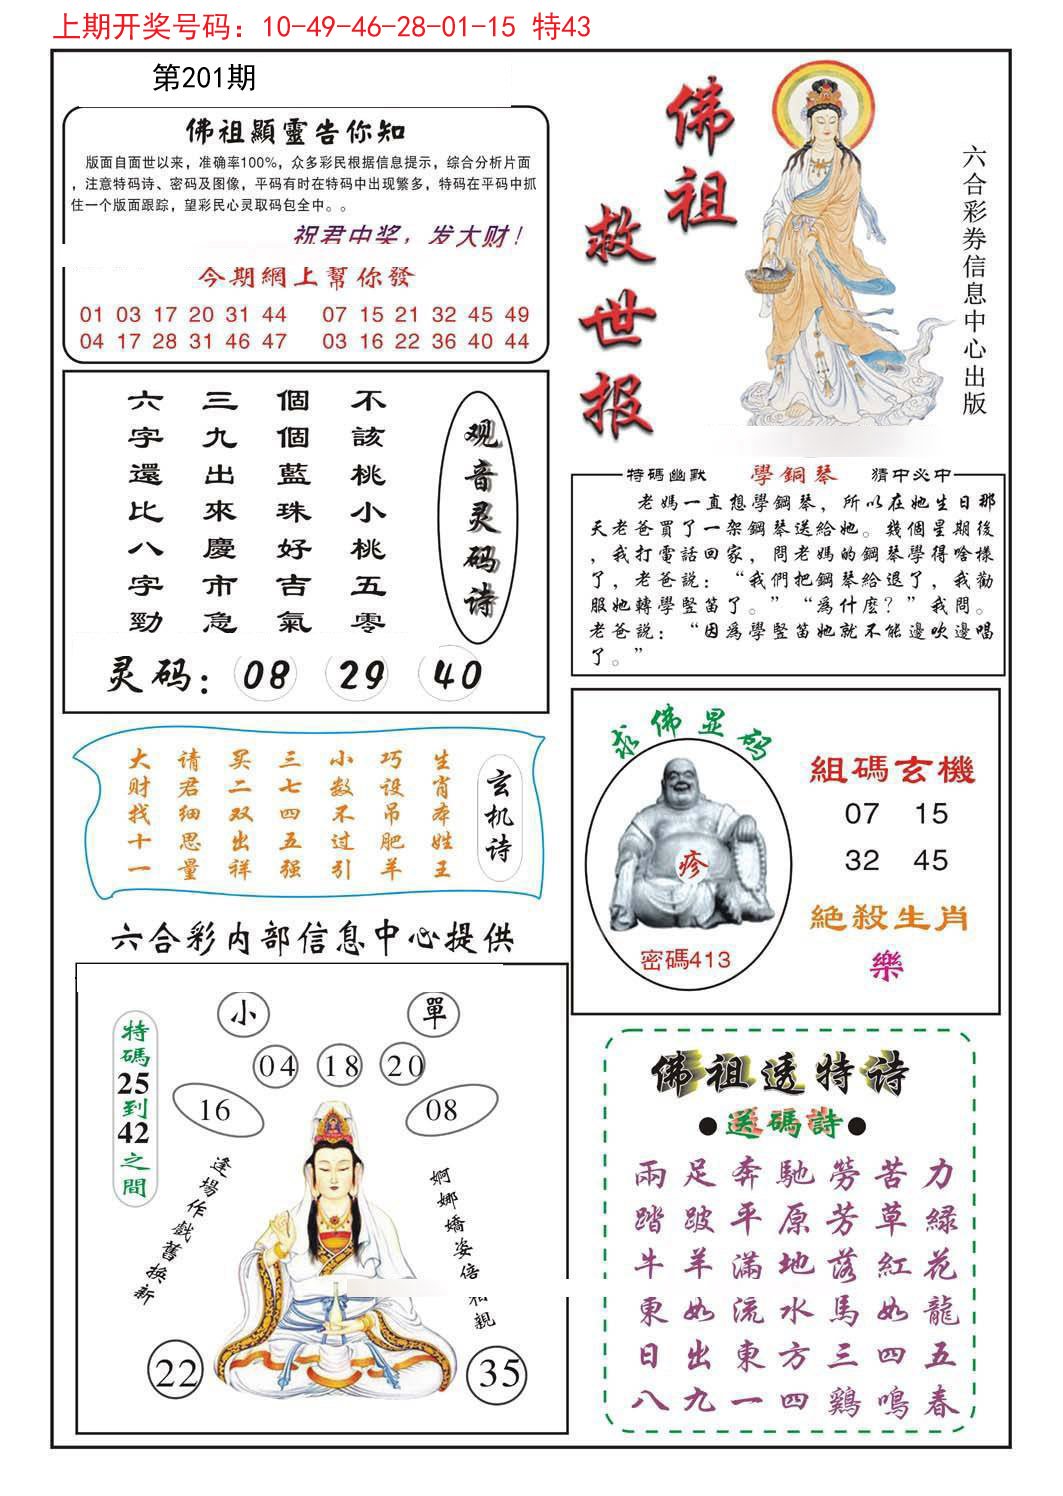 上期开奖号码：10-49-46-28-01-15 特43
第201期
佛祖顯靈告你知
版面自面世以来，准确率100%，众多彩民根据信息提示，综合分析片面
，注意特码诗、密码及图像，平码有时在特码中出现繁多，特码在平码中抓
住一个版面跟踪，望彩民心灵取码包全中。。
祝君中奖，发大财！
今期網上幫你發
01 03 17 20 31 44 07 15 21 32 45 49
04 17 28 31 46 47 03 16 22 36 40 44
佛祖
救世报
六合彩券信息中心出版
观音灵码诗
不該桃小桃五零
個個藍珠好吉氣
三九出來慶市急
六字還比八字勁
灵码：08 29 40
特碼幽默 學鋼琴 猜中必中
老媽一直想學鋼琴，所以在她生日那
天老爸買了一架鋼琴送給她。幾個星期後
，我打電話回家，問老媽的鋼琴學得啥樣
了，老爸説：“我們把鋼琴給退了，我勸
服她轉學豎笛了。”“為什麽？”我問。
老爸説：“因為學豎笛她就不能邊吹邊唱
了。”
玄机诗
生肖本姓王
巧设吊肥羊
小数不过引
三七四五强
买二双出祥
请君细思量
大财找十一
求佛显码
疹
密碼413
組碼玄機
07 15
32 45
絕殺生肖
樂
六合彩内部信息中心提供
小 單
04 18 20
16 08
特碼25到42之間
逢場作戲舊换新
婀娜嬌姿倍相親
22 35
佛祖透特诗
●送碼詩●
兩足奔馳勞苦力
踏跛平原芳草緑
牛羊滿地落紅花
東如流水馬如龍
日出東方三四五
八九一四鷄鳴春